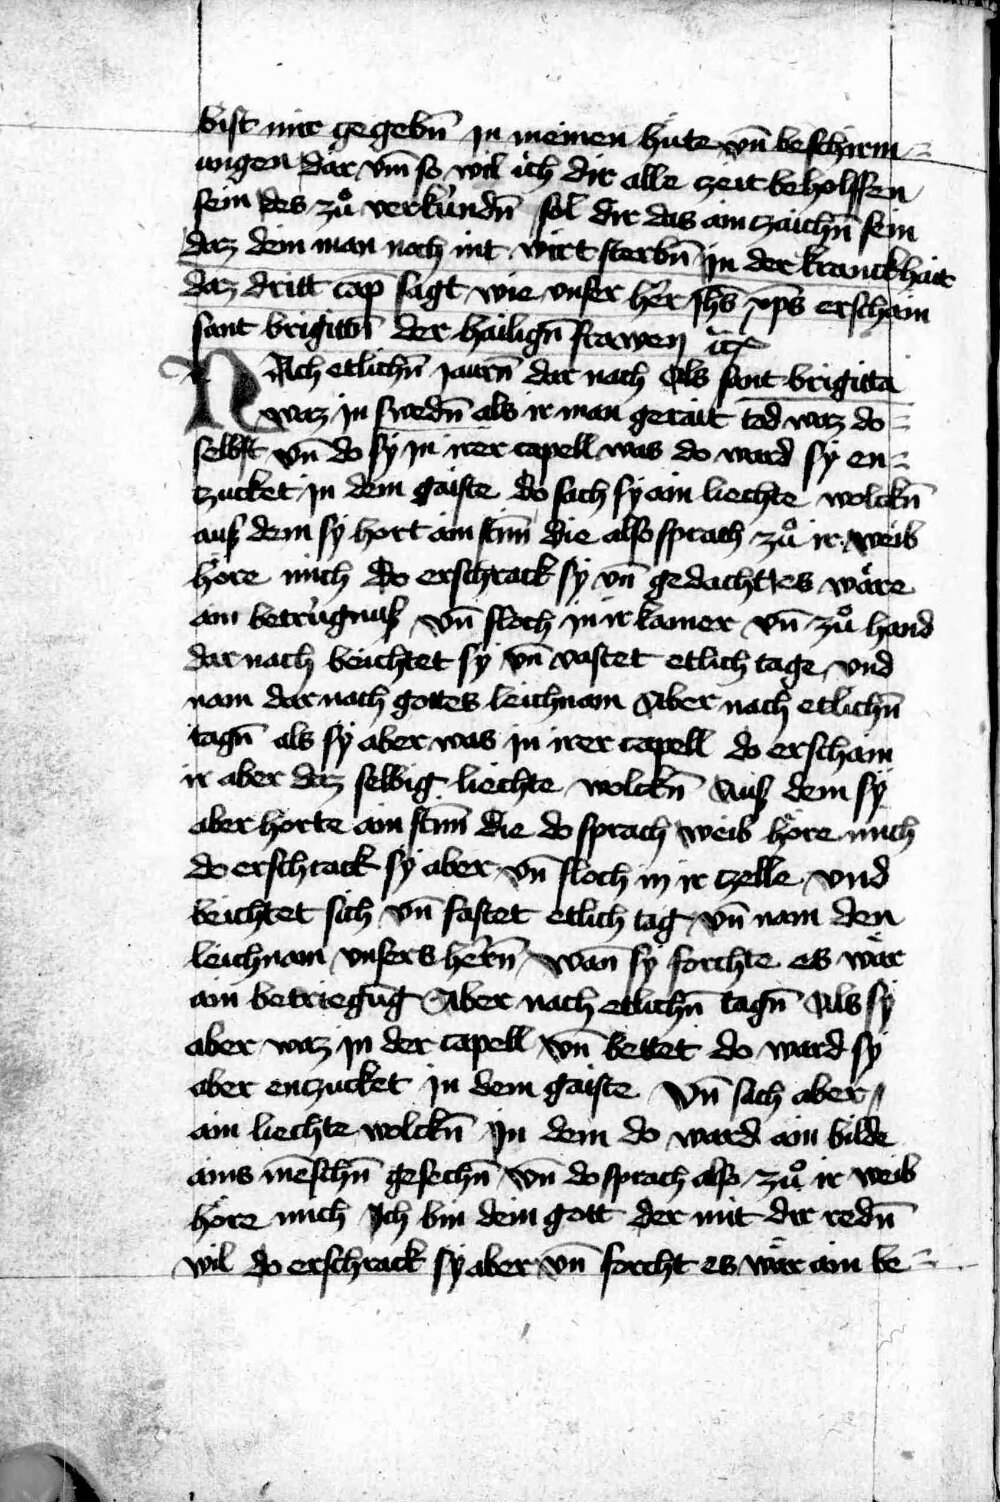 bist mir gegebn̄ in meinen hůte vn̄ beschirm=
ungen dar vm̄ so wil ich dir alle zeit beholffen
sein des zů verkündn̄ sol dir das ain tzaichn̄ sein
daz dein man noch nit wirt sterbn̄ in der kranckhait
daz dritt cap̄ sagt wie vnser her Jhs̄ xp̄s erschain
sant brigittn̄ der hailign̄ frawen
NAch etlichn̄ jaurn̄ dar nach Als sant brigitta
waz in swedn̄ als ir man gerait tod waz do=
selbst vn̄ do sy in irer capell was do ward sy en=
tzucket in dem gaiste do sach sy ain liechte wolckn̄
auß dem sy hort ain stim̄ die also sprach zů ir weib
höre mich do erschrack sy vn̄ gedacht es wäre
ain betrügnuß vn̄ floch in ir kamer vn̄ zů hand
dar nach beichtet sy vn̄ vastet etlich tage vnd
nam dar nach gottes leichnam Aber nach etlichn̄
tagn̄ als sy aber was in irer capell do erschain
ir aber daz selbig liechte wolckn̄ Auß dem sy
aber horte ain stim̄ die do sprach weib höre mich
do erschrack sy aber vn̄ floch in ir tzelle vnd
beichtet sich vn̄ fastet etlich tag vn̄ nam den
leichnam vnsers hern̄ wan̄ sy forchte es wär
ain betriegūg Aber nach etlichn̄ tagn̄ Als sy
aber waz in der capell vn̄ bettet do ward sy
aber entzucket in dem gaiste vn̄ sach aber
ain liechte wolckn̄ in dem do ward ain bilde
ains mēschn̄ gesechn̄ vn̄ do sprach also zů ir weib
höre mich Ich bin dein gott der mit dir redn̄
wil do erschrack sy aber vn̄ forcht es wär ain be=